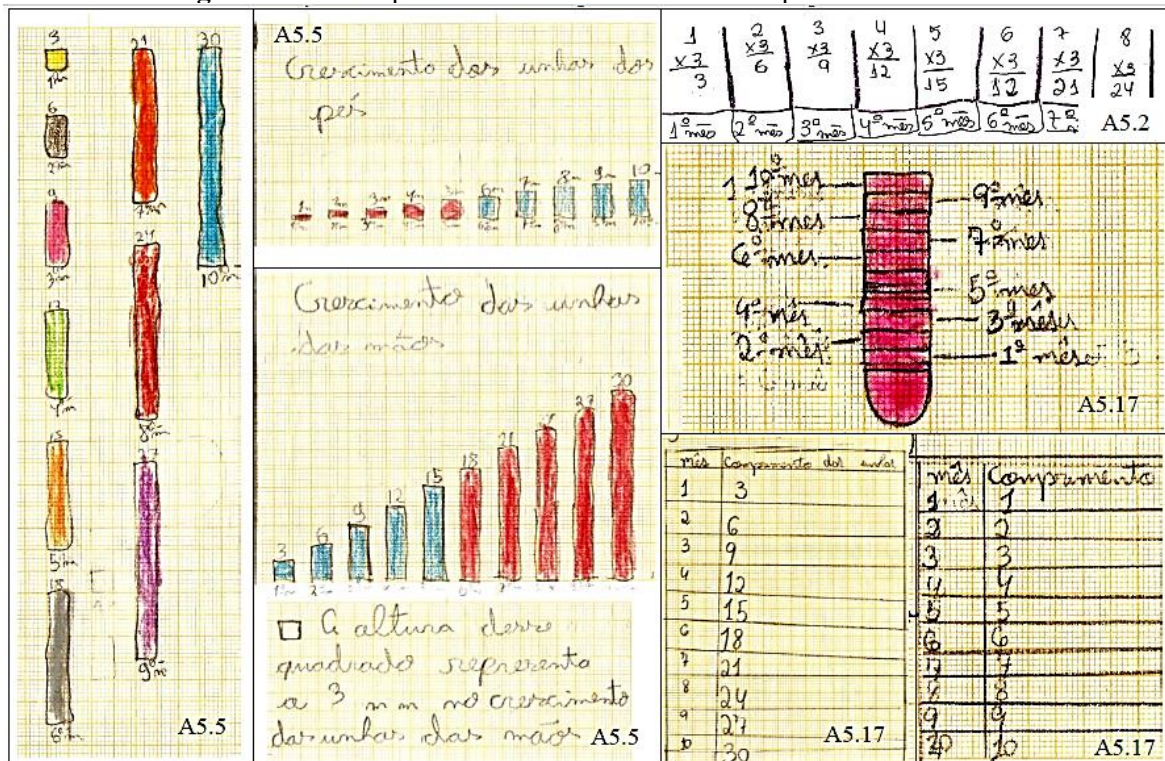 3
6
2ºm
9
3ºm
12
4ºm
15
5ºm
18
6ºm
21
7ºm
24
8ºm
27
9ºm
30
10ºm
A5.5
A5.5
Crescimento das unhas dos
pés
1m 2m 3m 4m 5m 6m 7m 8m 9m 10m
Crescimento das unhas
das mãos
3 6 9 12 15 18 21 27 30
A altura desse
quadrado representa
a 3 mm no crescimento
das unhas das mãos A5.5
1 2 3 4 5 6 7 8
x3 x3 x3 x3 x3 x3 x3 x3
3 6 9 12 15 12 21 24
1º mês 2º mês 3º mês 4º mês 5º mês 6º mês 7º A5.2
10º mês
9º mês
8º mês
7º mês
6º mês
5º mês
4º mês
3º mês
2º mês
1º mês
A5.17
mês Comprimento das
1 3
2 6
3 9
4 12
5 15
6 18
7 21
8 24
9 27
10 30
A5.17
mês Comprimento
1 1
2 2
3 3
4 4
5 5
6 6
7 7
8 8
9 9
10 10
A5.17